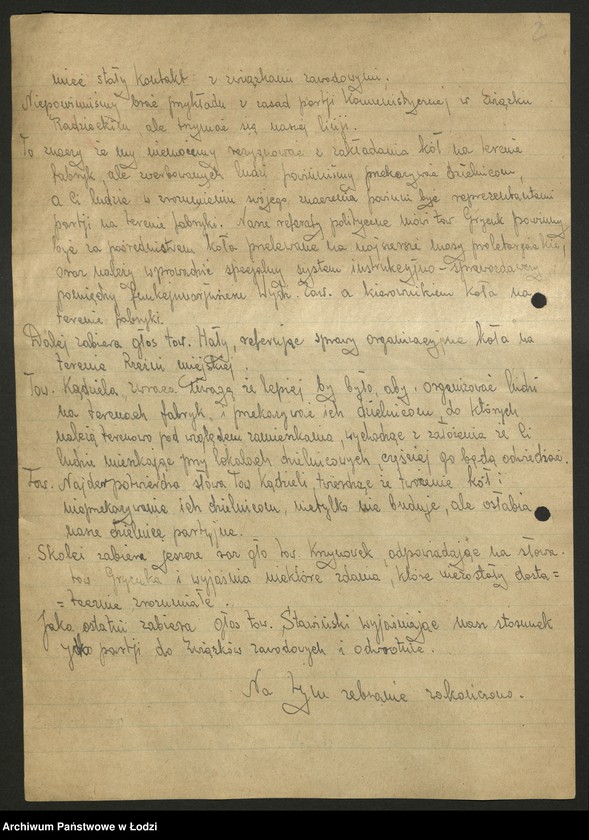 2
mieć stały kontakt z związkami zawodowymi.
Niepowinniśmy brać przykładu z zasad partji Komunistycznej w Związku
Radzieckim ale trzymać się naszej linji.
To znaczy że my niemożemy rezygnować z zakładania kół na terenie
fabryk ale zwerbowanych ludzi powinniśmy przekazywać dzielnicom,
a Ci ludzie w zrozumieniu swojego znaczenia powinni być reprezentantami
partji na terenie fabryki. Nasze referaty polityczne mówi tow Grycuk powinny
być za pośrednictwem koła przelewane na najszersze masy proletarjackie,
oraz należy wprowadzić specjalny system instrukcyjno-sprawozdawczy
pomiędzy funkcjonarjuszem Wydz. Zaw. a kierownikiem koła na
terenie fabryki.
Dalej zabiera głos tow. Hały, referując sprawy organizacyjne koła na
terenie Rzeźni miejskiej.
Tow. Kądziela, zwraca uwagą że lepiej by było, aby, organizować ludzi
na terenach fabryk, i przekazywać ich dzielnicom do których
należą terenowo pod względem zamieszkania, wychodząc z założenia że Ci
ludzie mieszkając przy lokalach dzielnicowych, częściej go będą odwiedzać.
Tow. Najder potwierdza słowa Tow Kądzieli twierdząc że tworzenie kół i
nieprzekazywanie ich dzielnicom, nietylko nie buduje, ale osłabia
nasze dzielnice partyjne.
Skolei zabiera jeszcze raz gło tow. Krzynowek, odpowiadając na słowa
tow Grycuka i wyjaśnia niektóre zdania, które niezostały dosta=
=tecznie zrozumiałe.
Jako ostatni zabiera głos tow. Stawiński wyjaśniając nasz stosunek
partji do Związków zawodowych i odwrotnie.
Na tym zebranie zakończono.
Archiwum Państwowe w Łodzi